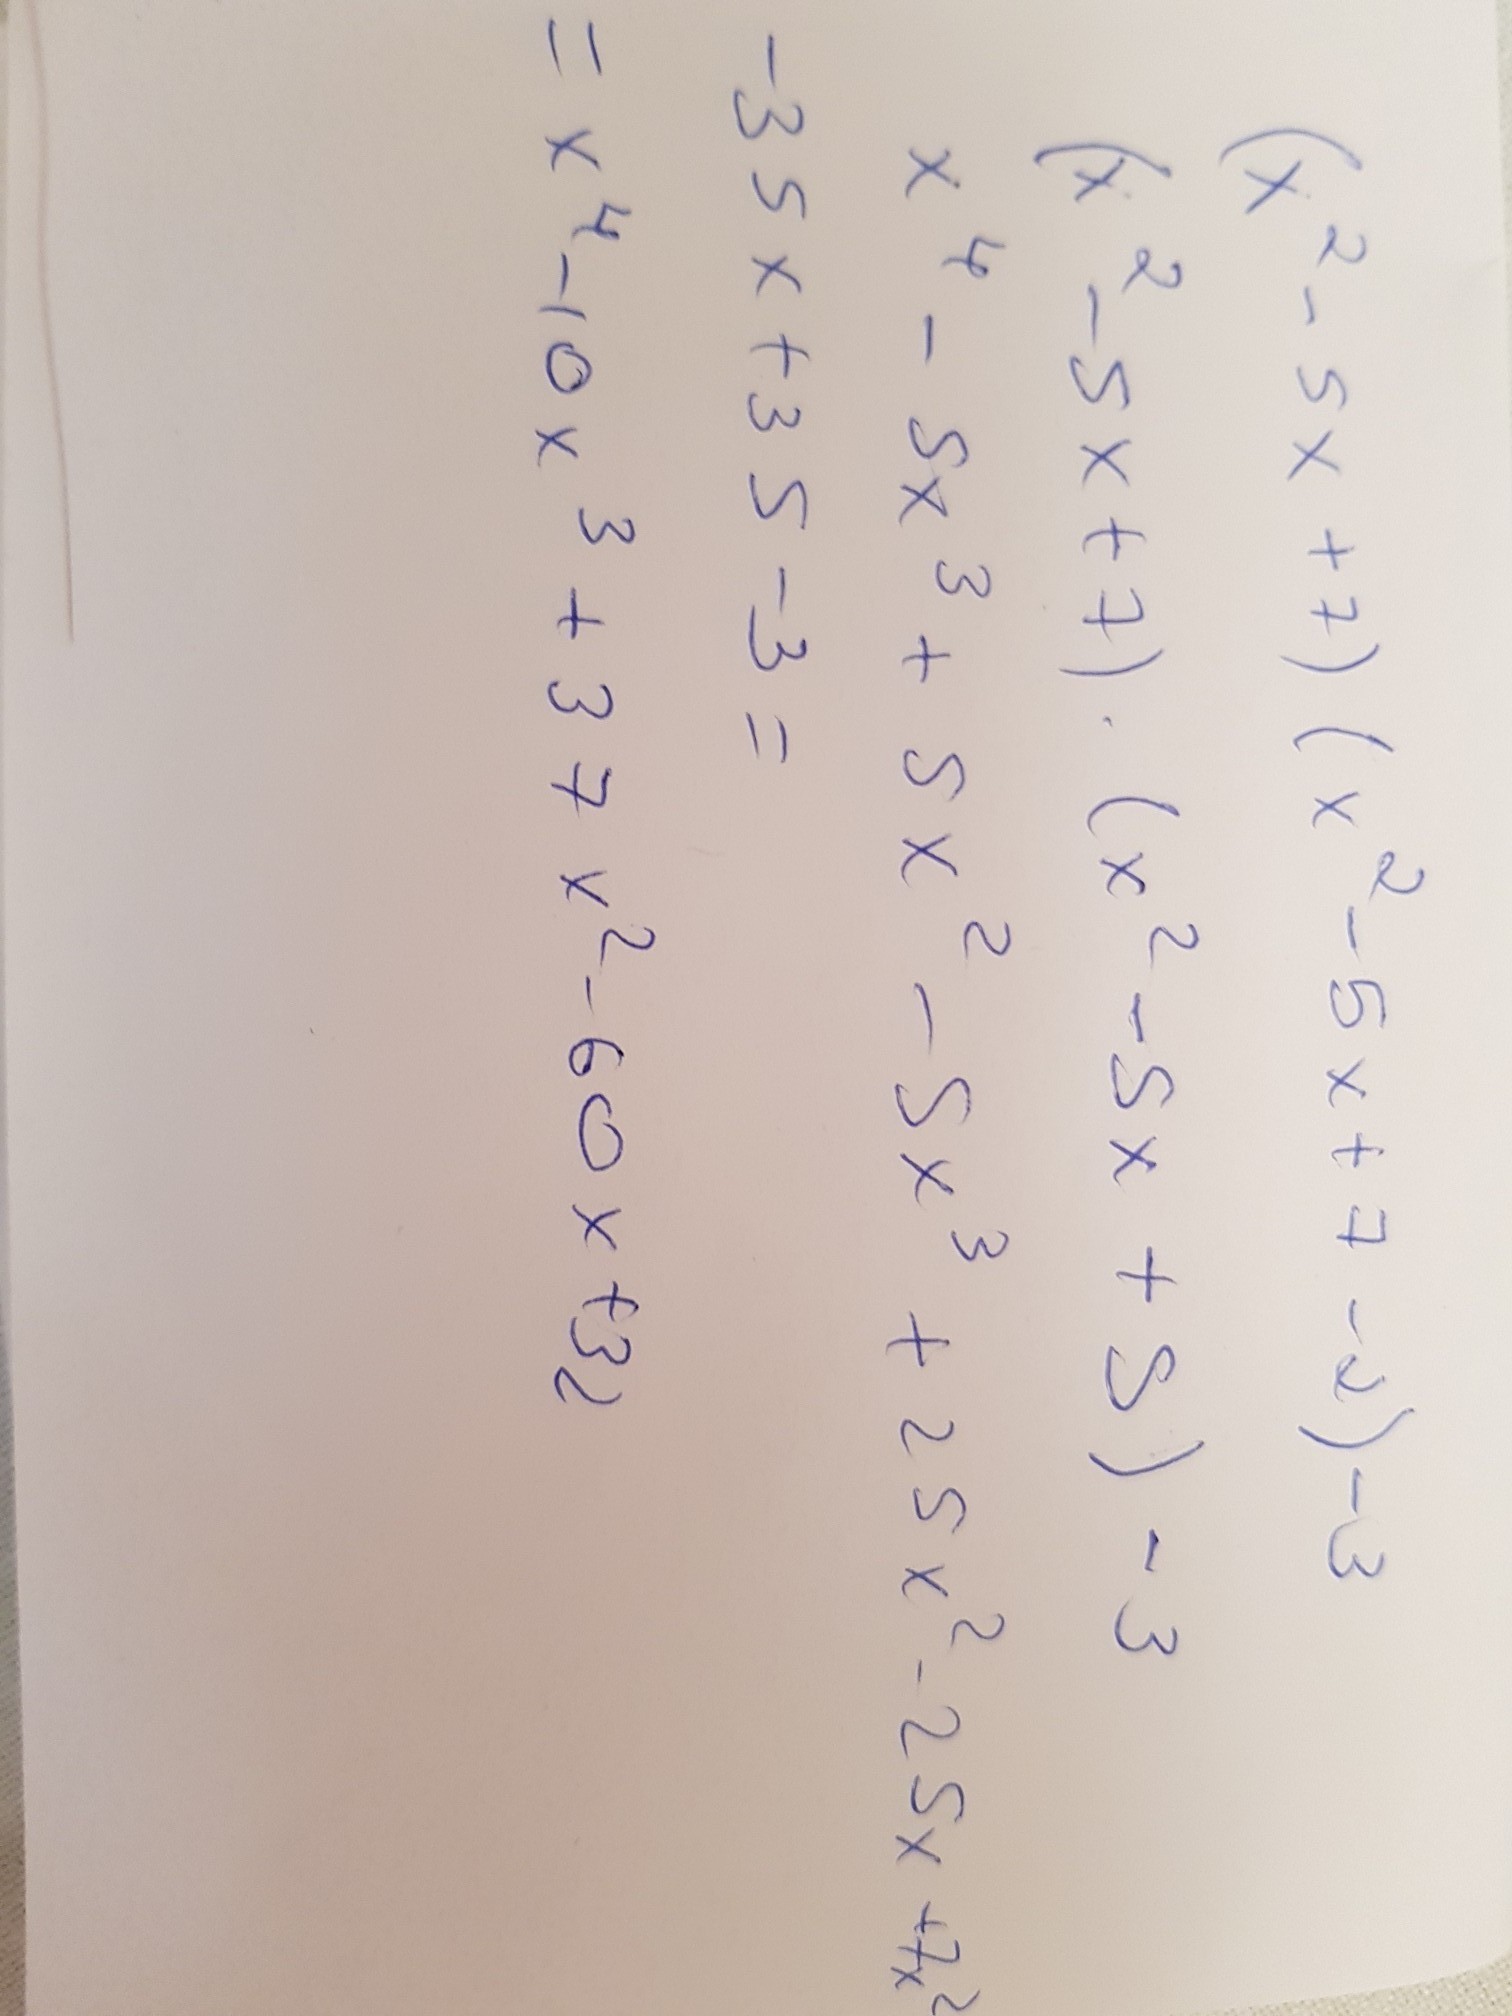 (x² - 5x + 7) (x² - 5x + 7 - 2) - 3
(x² - 5x + 7) · (x² - 5x + 5) - 3
x⁴ - 5x³ + 5x² - 5x³ + 25x² - 25x + 7x²
- 35x + 35 - 3 =
= x⁴ - 10x³ + 37x² - 60x + 32